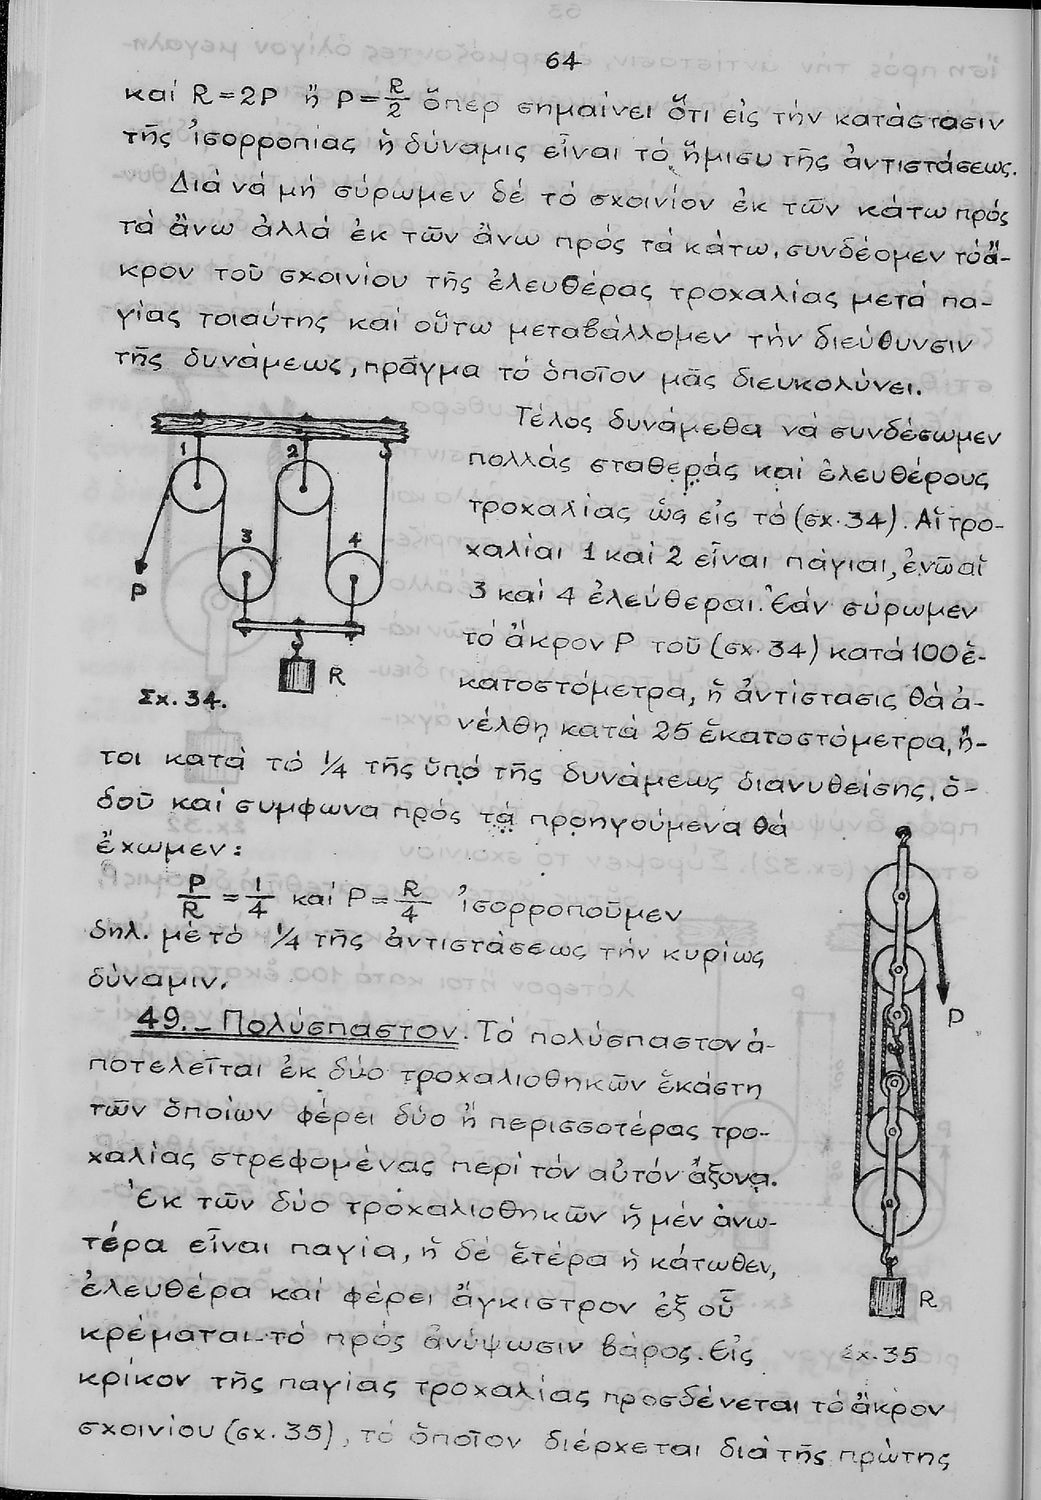 64
καί R=2P ἤ P=R/2 ὅπερ σημαίνει ὅτι εἰς τήν κατάστασιν
τῆς ἰσορροπίας ἡ δύναμις εἶναι τό ἥμισυ τῆς ἀντιστάσεως.
Διά νά μή σύρωμεν δέ τό σχοινίον ἐκ τῶν κάτω πρός
τά ἄνω ἀλλά ἐκ τῶν ἄνω πρός τά κάτω, συνδέομεν τό ἄ-
κρον τοῦ σχοινίου τῆς ἐλευθέρας τροχαλίας μετά πα-
γίας τοιαύτης καί οὕτω μεταβάλλομεν τήν διεύθυνσιν
τῆς δυνάμεως, πρᾶγμα τό ὁποῖον μᾶς διευκολύνει.
Τέλος δυνάμεθα νά συνδέσωμεν
πολλάς σταθεράς καί ἐλευθέρους
τροχαλίας ὡς εἰς τό (σχ. 34). Αἱ τρο-
χαλίαι 1 καί 2 εἶναι πάγιαι, ἐνῶ αἱ
3 καί 4 ἐλεύθεραι. Ἐάν σύρωμεν
τό ἄκρον P τοῦ (σχ. 34) κατά 100 ἑ-
κατοστόμετρα, ἡ ἀντίστασις θά ἀ-
νέλθῃ κατά 25 ἑκατοστόμετρα, ἤ-
τοι κατά τό 1/4 τῆς ὑπό τῆς δυνάμεως διανυθείσης, ὁ-
δοῦ καί συμφωνα πρός τά προηγούμενα θά
ἔχωμεν:
P/R = 1/4 καί P = R/4 ἰσορροποῦμεν
δηλ. μέ τό 1/4 τῆς ἀντιστάσεως τήν κυρίως
δύναμιν.
49.- Πολύσπαστον. Τό πολύσπαστον ἀ-
ποτελεῖται ἐκ δύο τροχαλιοθηκῶν ἑκάστη
τῶν ὁποίων φέρει δύο ἤ περισσοτέρας τρο-
χαλίας στρεφομένας περί τόν αὐτόν ἄξονα.
Ἐκ τῶν δύο τροχαλιοθηκῶν ἡ μέν ἀνω-
τέρα εἶναι παγία, ἡ δέ ἑτέρα ἡ κάτωθεν,
ἐλευθέρα καί φέρει ἄγκιστρον ἐξ οὗ
κρέμαται τό πρός ἀνύψωσιν βάρος. Εἰς
κρίκον τῆς παγίας τροχαλίας προσδένεται τό ἄκρον
σχοινίου (σχ. 35), τό ὁποῖον διέρχεται διά τῆς πρώτης
1
2
3
4
P
R
Σχ. 34.
P
R
Σχ. 35